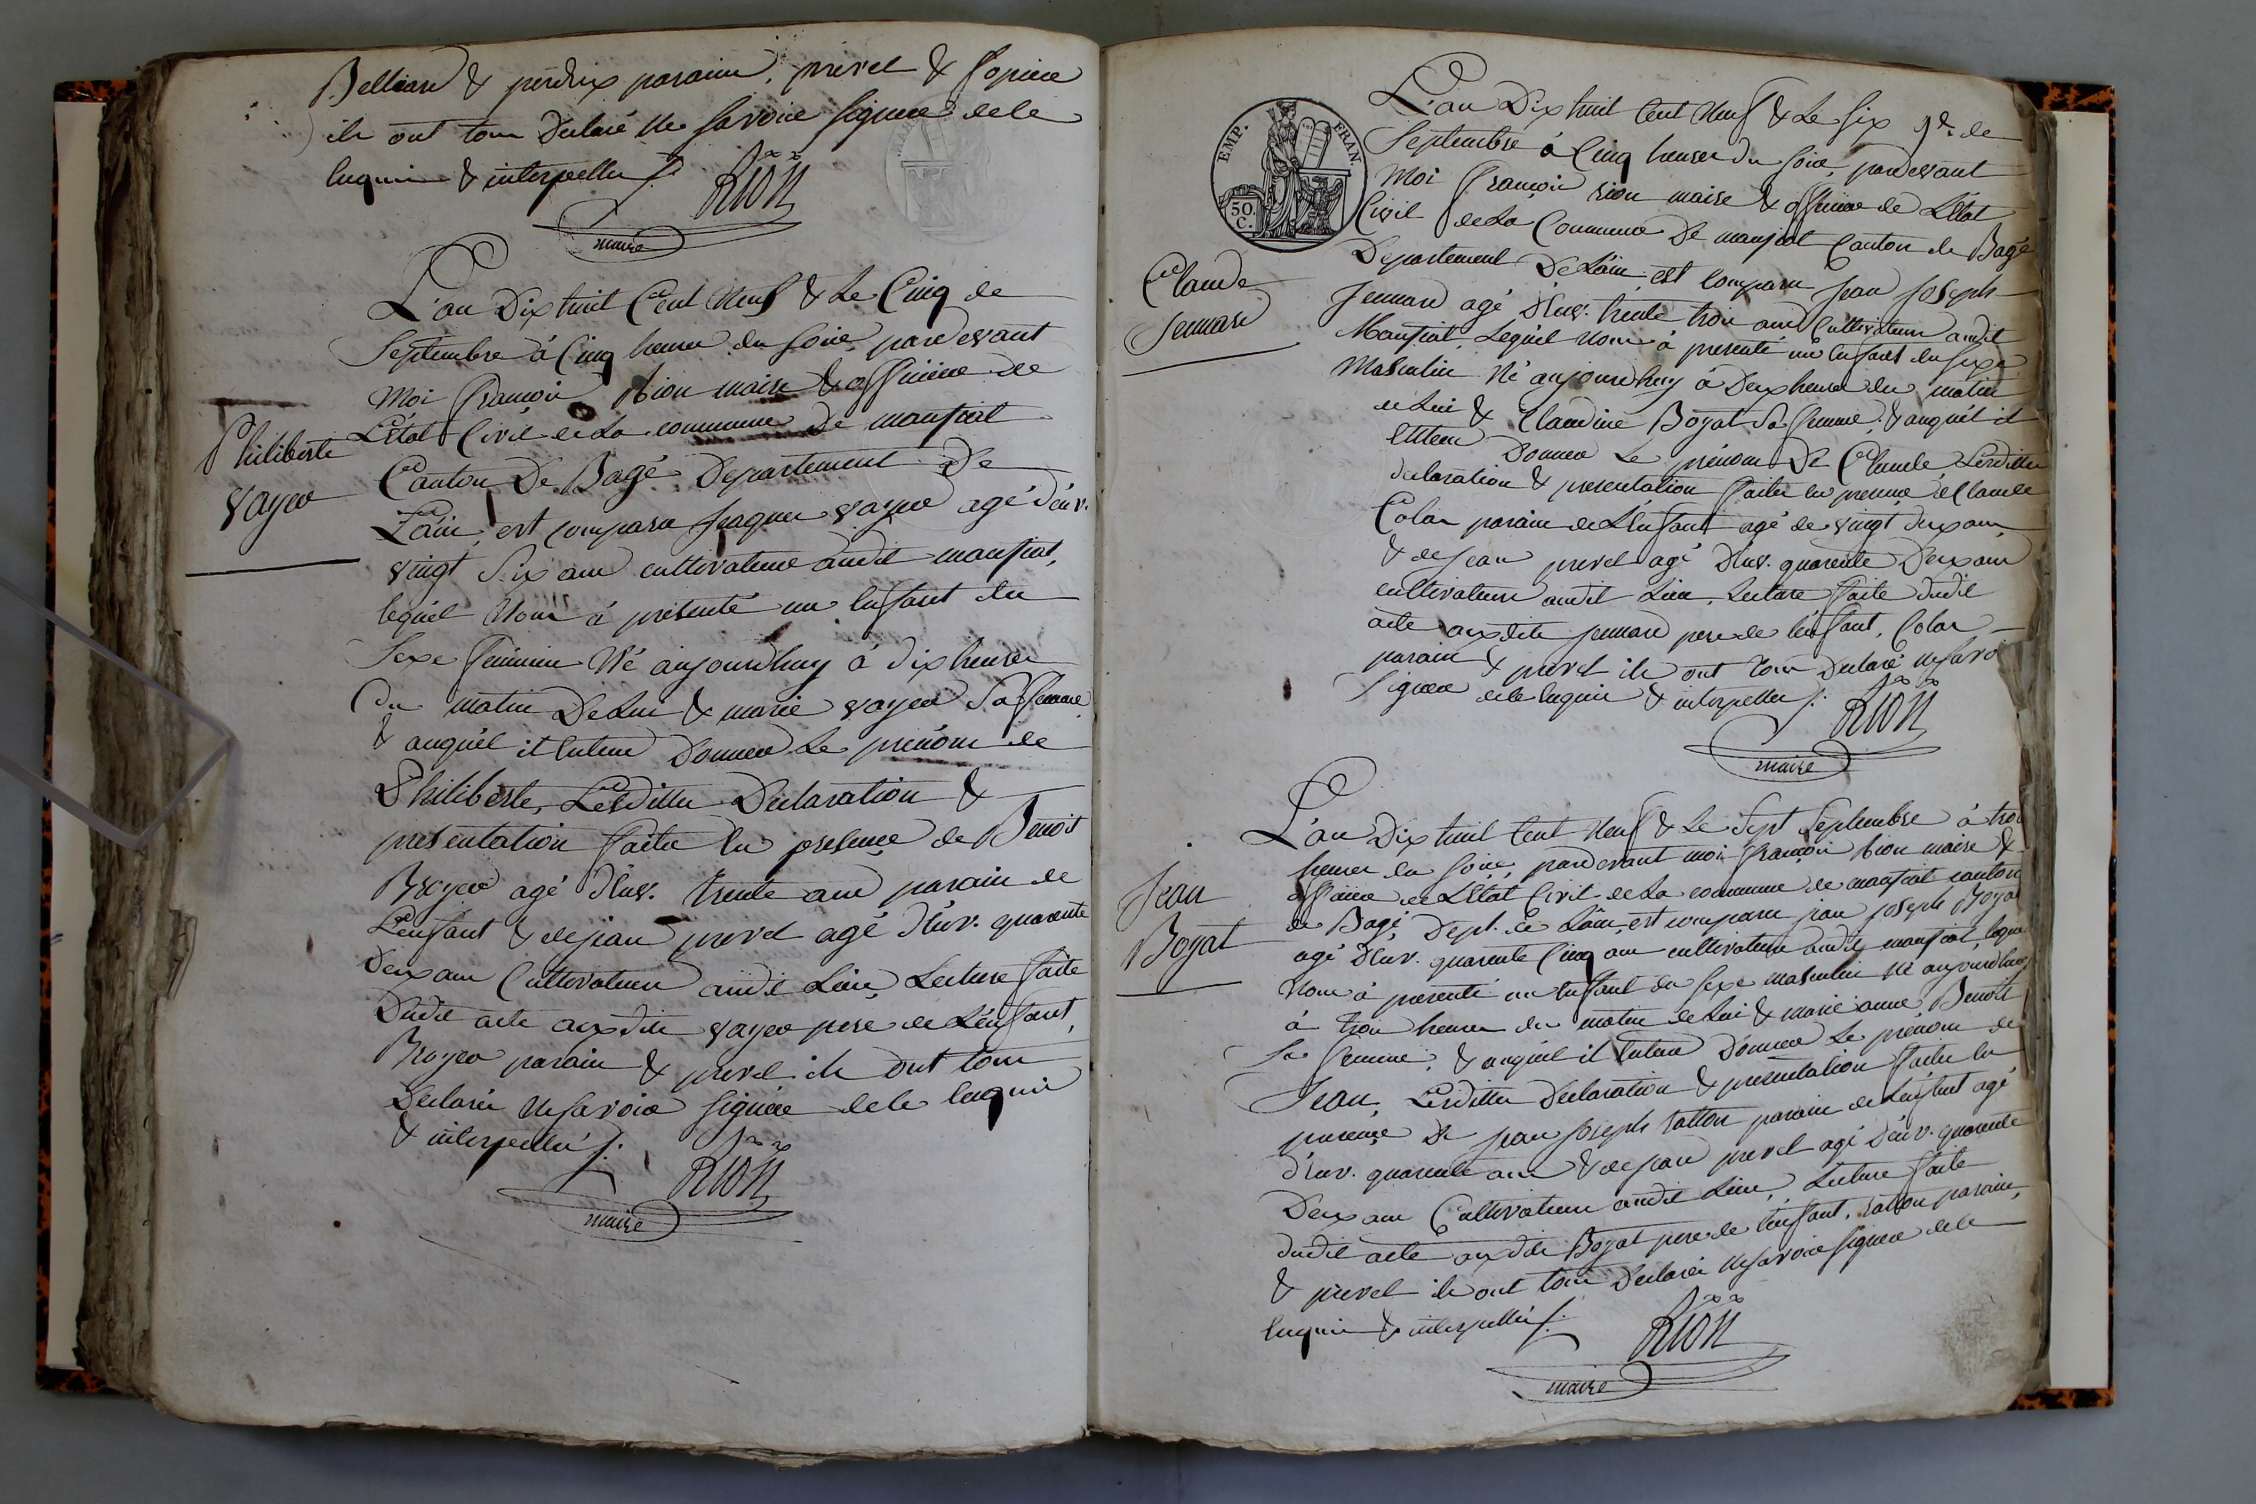 Belliard & perdrix parain, privet & Sopine
ils ont tous Declaré ne savoir signer de ce
Enquis & interpellés /.
RION
maire
L'an Dix huit Cent Neuf & Le Cinq de
Septembre à Cinq heures du soir, pardevant
Moi françois Rion maire & officier de
L'état Civil de La commune De manziat
Canton De Bagé Departement De
L'ain, est comparu Jaques vayer agé d'env.
vingt Six ans cultivateur audit manziat,
lequel Nous à présenté un Enfant du
Sexe feminin Né aujourdhuy à dix heures
du matin De Lui & marie vayer Sa femme
& auquel il Entend Donner Le prénom de
Philiberte, Lesdittes Déclaration &
presentation faites En presence de Benoit
Broyer agé d'Env. trente ans parain de
L'enfant & de jean privet agé d'Env. quarente
Deux ans Cultivateurs audit Lieu, Lecture faite
Dudit acte auxdits vayer pere de L'enfant,
Broyer parain & privet ils ont tous
Declarés ne savoir signer de ce Enquis
& interpellés /.
RION
maire
Philiberte
vayer
EMP. FRAN.
50. C.
L'an Dix huit Cent Neuf & Le Six de
Septembre à Cinq heures du soir, pardevant
Moi françois rion maire & officier de L'état
Civil de La Commune De manziat Canton de Bagé
Departement De L'ain, est comparu Jean Joseph
Jennard agé d'Env. trente trois ans Cultivateur audit
Manziat, Lequel Nous à presenté un Enfant du sexe
Masculin Né aujourdhuy à Deux heures du matin
de Lui & Claudine Boyat Sa femme, & auquel il
Entend Donner Le prénom De Claude Lesdittes
declaration & presentation faites en presence de Claude
Colas parain de L'Enfant agé de vingt deux ans
& de Jean privet agé d'Env. quarente Deux ans
cultivateurs audit Lieu, Lecture faite dudit
acte auxdits Jennard pere de l'enfant, Colas
parain & privet ils ont tous Declaré ne savo
signer de ce Enquis & interpellés /.
RION
maire
Claude
Jennard
L'an Dix huit Cent Neuf & Le Sept Septembre à trois
heures du soir, pardevant moi françois Rion maire &
officier de L'état Civil de La commune de manziat canton
de Bagé Dept. de L'ain, est comparu jean joseph Boyat
agé d'Env. quarente Cinq ans cultivateur audit manziat, lequel
Nous à presenté un Enfant du sexe masculin Né aujourdhuy
à trois heures du matin de Lui & marie anne Benoit
Sa femme, & auquel il Entend Donner Le prénom de
Jean, Lesdittes Declaration & presentation faites En
presence De jean joseph ratton parain de L'enfant agé
d'Env. quarente ans & de jean privet agé d'Env. quarente
Deux ans Cultivateurs audit Lieu, Lecture faite
dudit acte auxdits Boyat pere de l'enfant, ratton parain,
& privet ils ont tous Declarés ne savoir signer de ce
Enquis & interpellés /.
RION
maire
Jean
Boyat